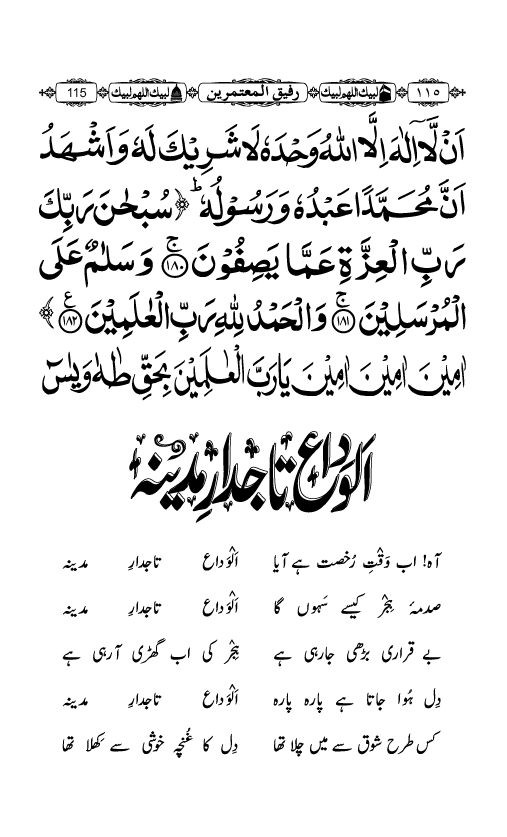 ١١٥ لبیك اللهم لبیك رفیق المعتمرین لبیك اللهم لبیك 115
اَنْ لَّاۤ اِلٰهَ اِلَّا اللهُ وَحْدَهٗ لَا شَرِيْكَ لَهٗ وَاَشْهَدُ
اَنَّ مُحَمَّدًا عَبْدُهٗ وَرَسُوْلُهٗ ؕ ﴿ سُبْحٰنَ رَبِّكَ
رَبِّ الْعِزَّةِ عَمَّا يَصِفُوْنَ ﴿١٨٠﴾ۚ وَسَلٰمٌ عَلَى
الْمُرْسَلِيْنَ ﴿١٨١﴾ۚ وَالْحَمْدُ لِلّٰهِ رَبِّ الْعٰلَمِيْنَ ﴿١٨٢﴾ع ﴾
اٰمِيْنَ اٰمِيْنَ اٰمِيْنَ يَارَبَّ الْعٰلَمِيْنَ بِحَقِّ طٰهٰ وَيٰسٓ
اَلْوَداع تاجدارِ مدینہ
آہ! اب وَقْتِ رُخصت ہے آیا اَلْوَداع تاجدارِ مدینہ
صدمۂ ہِجْر کیسے سَہوں گا اَلْوَداع تاجدارِ مدینہ
بے قراری بڑھی جارہی ہے ہِجْر کی اب گھڑی آرہی ہے
دِل ہُوا جاتا ہے پارہ پارہ اَلْوَداع تاجدارِ مدینہ
کس طرح شوق سے میں چلا تھا دِل کا غُنچہ خوشی سے کھِلا تھا